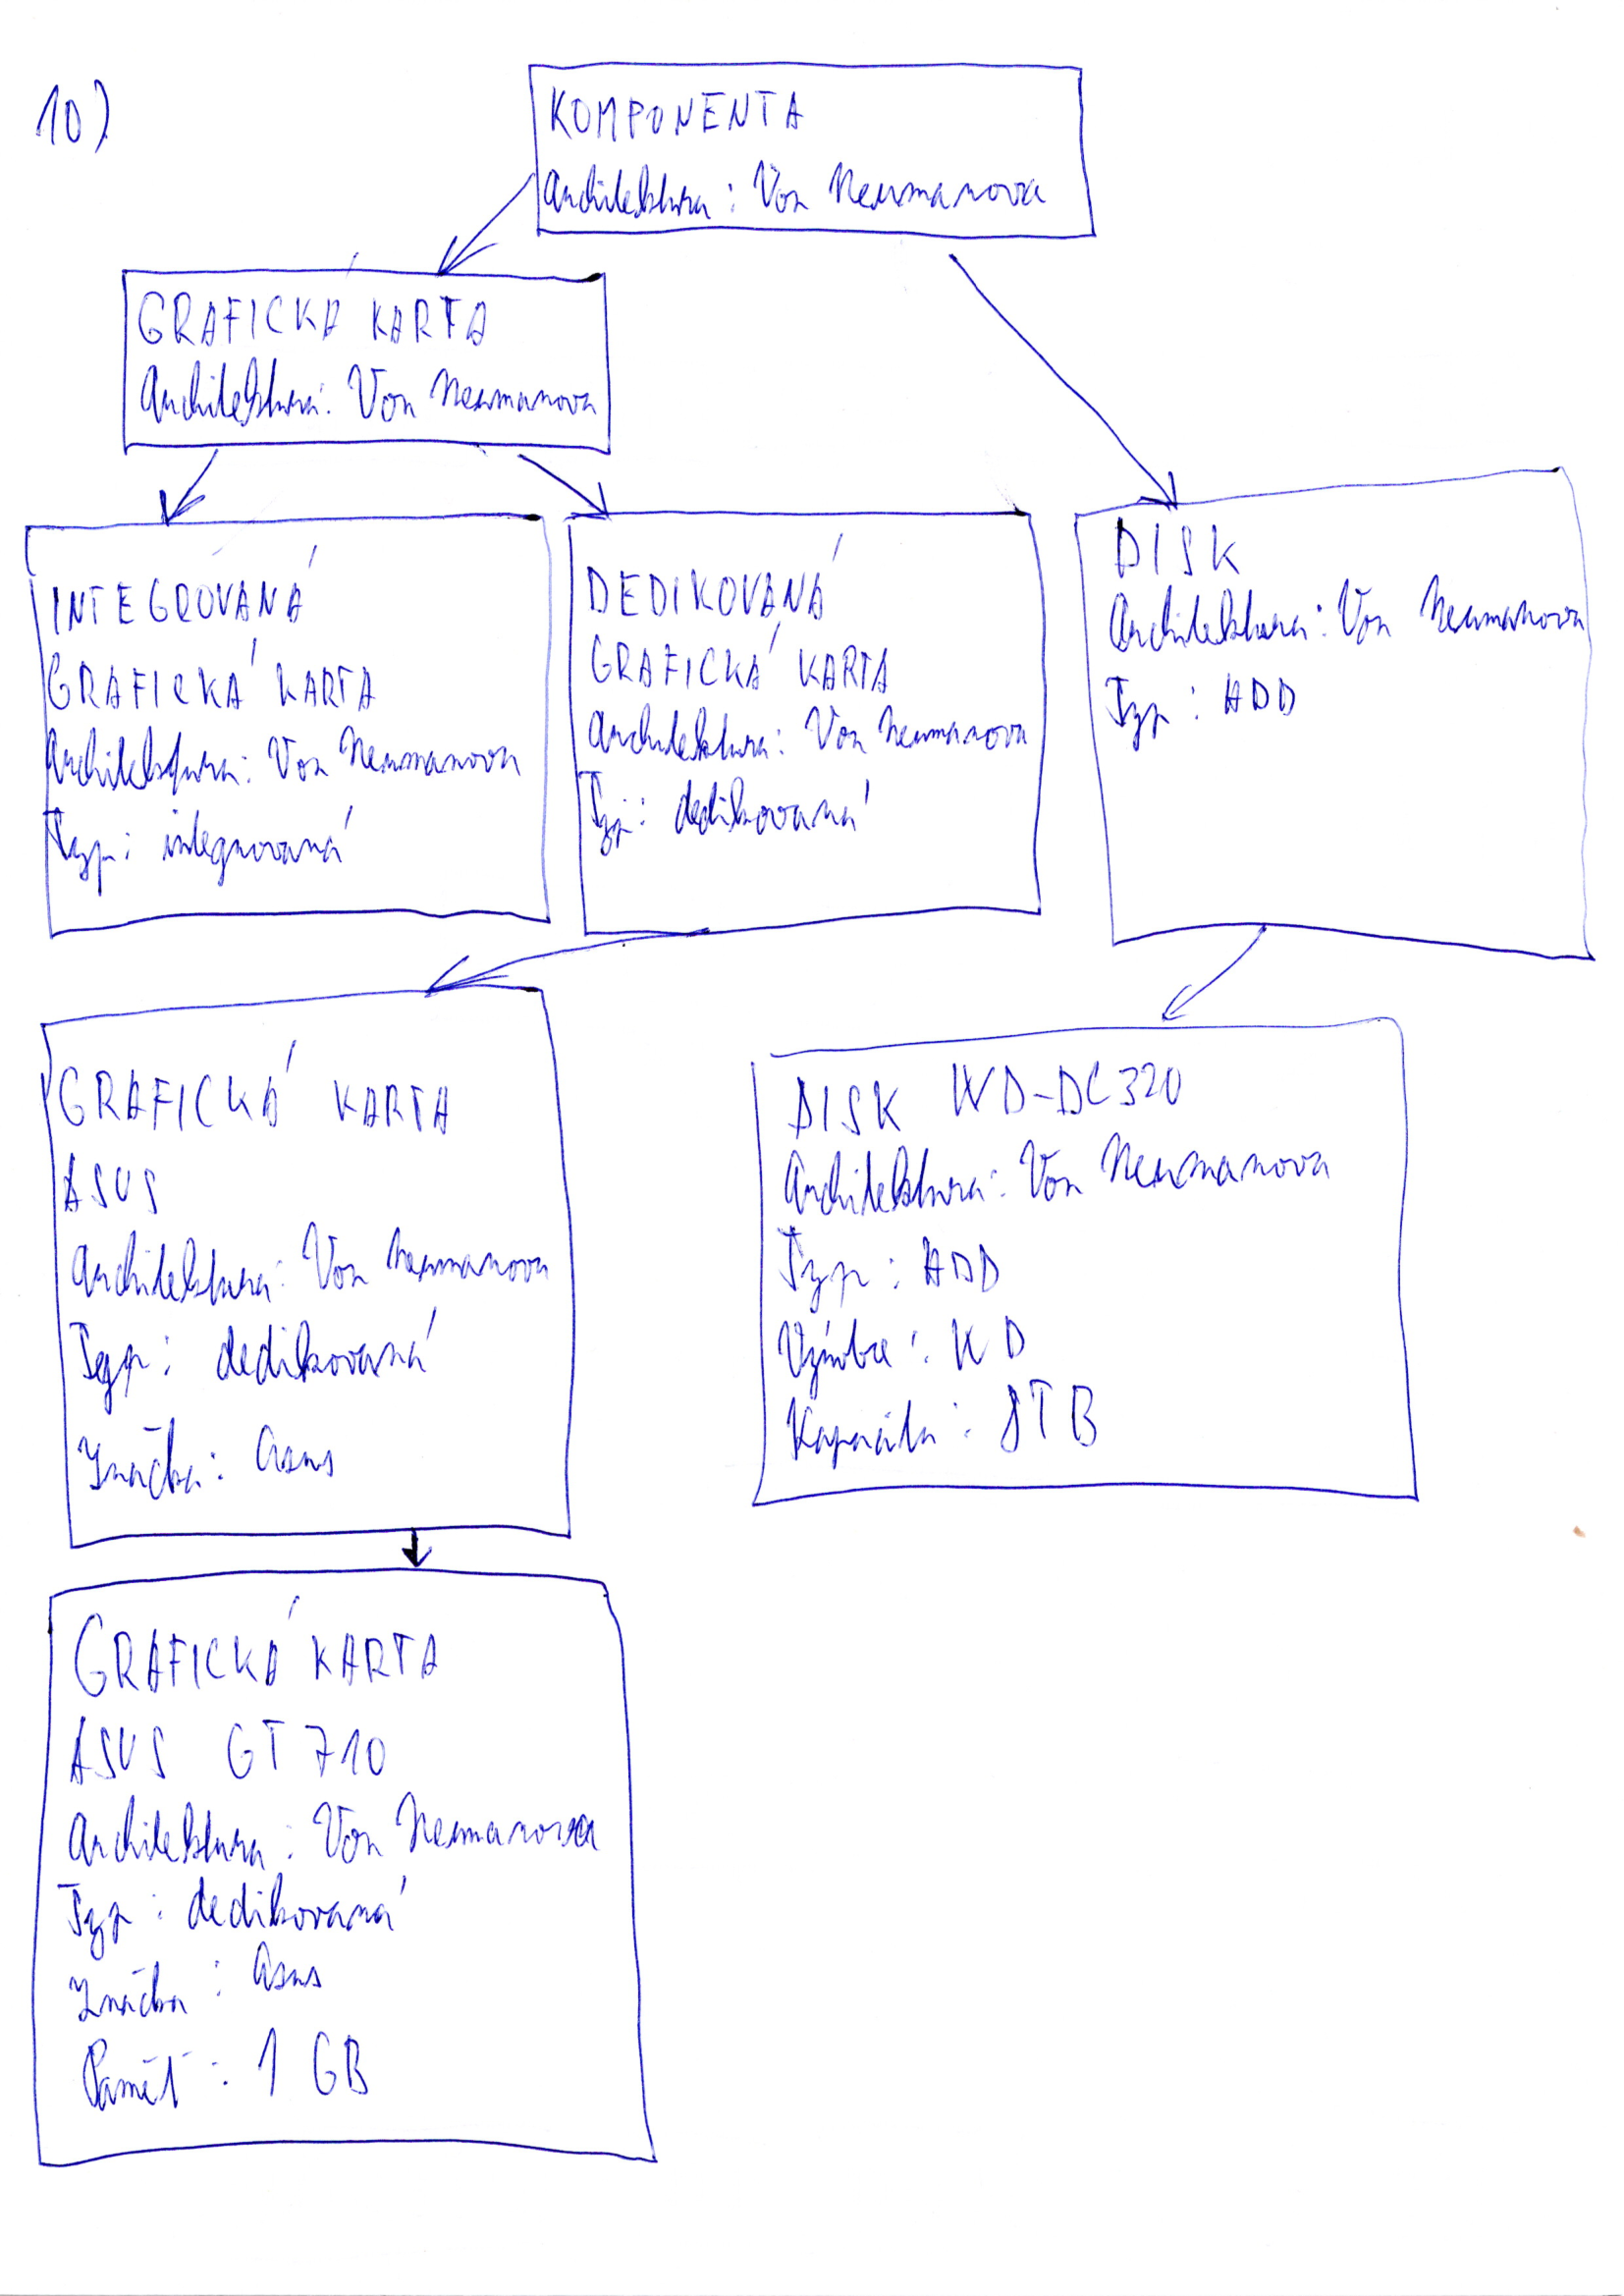 10)
KOMPONENTA
Architektura: Von Neumanova
GRAFICKÁ KARTA
Architektura: Von Neumanova
INTEGROVANÁ
GRAFICKÁ KARTA
Architektura: Von Neumanova
Typ: integrovaná
DEDIKOVANÁ
GRAFICKÁ KARTA
Architektura: Von Neumanova
Typ: dedikovaná
DISK
Architektura: Von Neumanova
Typ: HDD
GRAFICKÁ KARTA
ASUS
Architektura: Von Neumanova
Typ: dedikovaná
Značka: Asus
DISK WD-DC320
Architektura: Von Neumanova
Typ: HDD
Výrobce: WD
Kapacita: 8TB
GRAFICKÁ KARTA
ASUS GT 710
Architektura: Von Neumanova
Typ: dedikovaná
Značka: Asus
Pamět: 1 GB